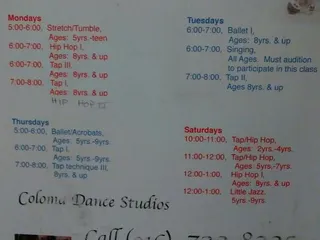 Mondays
5:00-6:00, Stretch/Tumble,
Ages: 5yrs.-teen
6:00-7:00, Hip Hop I,
Ages: 8yrs. & up
6:00-7:00, Tap III,
Ages: 8yrs. & up
7:00-8:00, Tap I,
Ages: 8yrs. & up
HIP HOP
Tuesdays
6:00-7:00, Ballet I,
Ages: 8yrs. & up
6:00-7:00, Singing,
All Ages Must audition
to participate in this class
7:00-8:00, Tap II,
Ages 8yrs. & up
Thursdays
5:00-6:00, Ballet/Acrobats,
Ages: 5yrs.-9yrs.
6:00-7:00, Tap I,
Ages: 5yrs.-9yrs.
7:00-8:00, Tap technique III,
8yrs. & up
Saturdays
10:00-11:00, Tap/Hip Hop,
Ages: 2yrs.-4yrs.
11:00-12:00, Tap/Hip Hop,
Ages: 5yrs.-7yrs.
12:00-1:00, Hip Hop I
Ages: 8yrs. & up
12:00-1:00, Little Jazz,
5yrs.-9yrs.
Coloma Dance Studios
Call